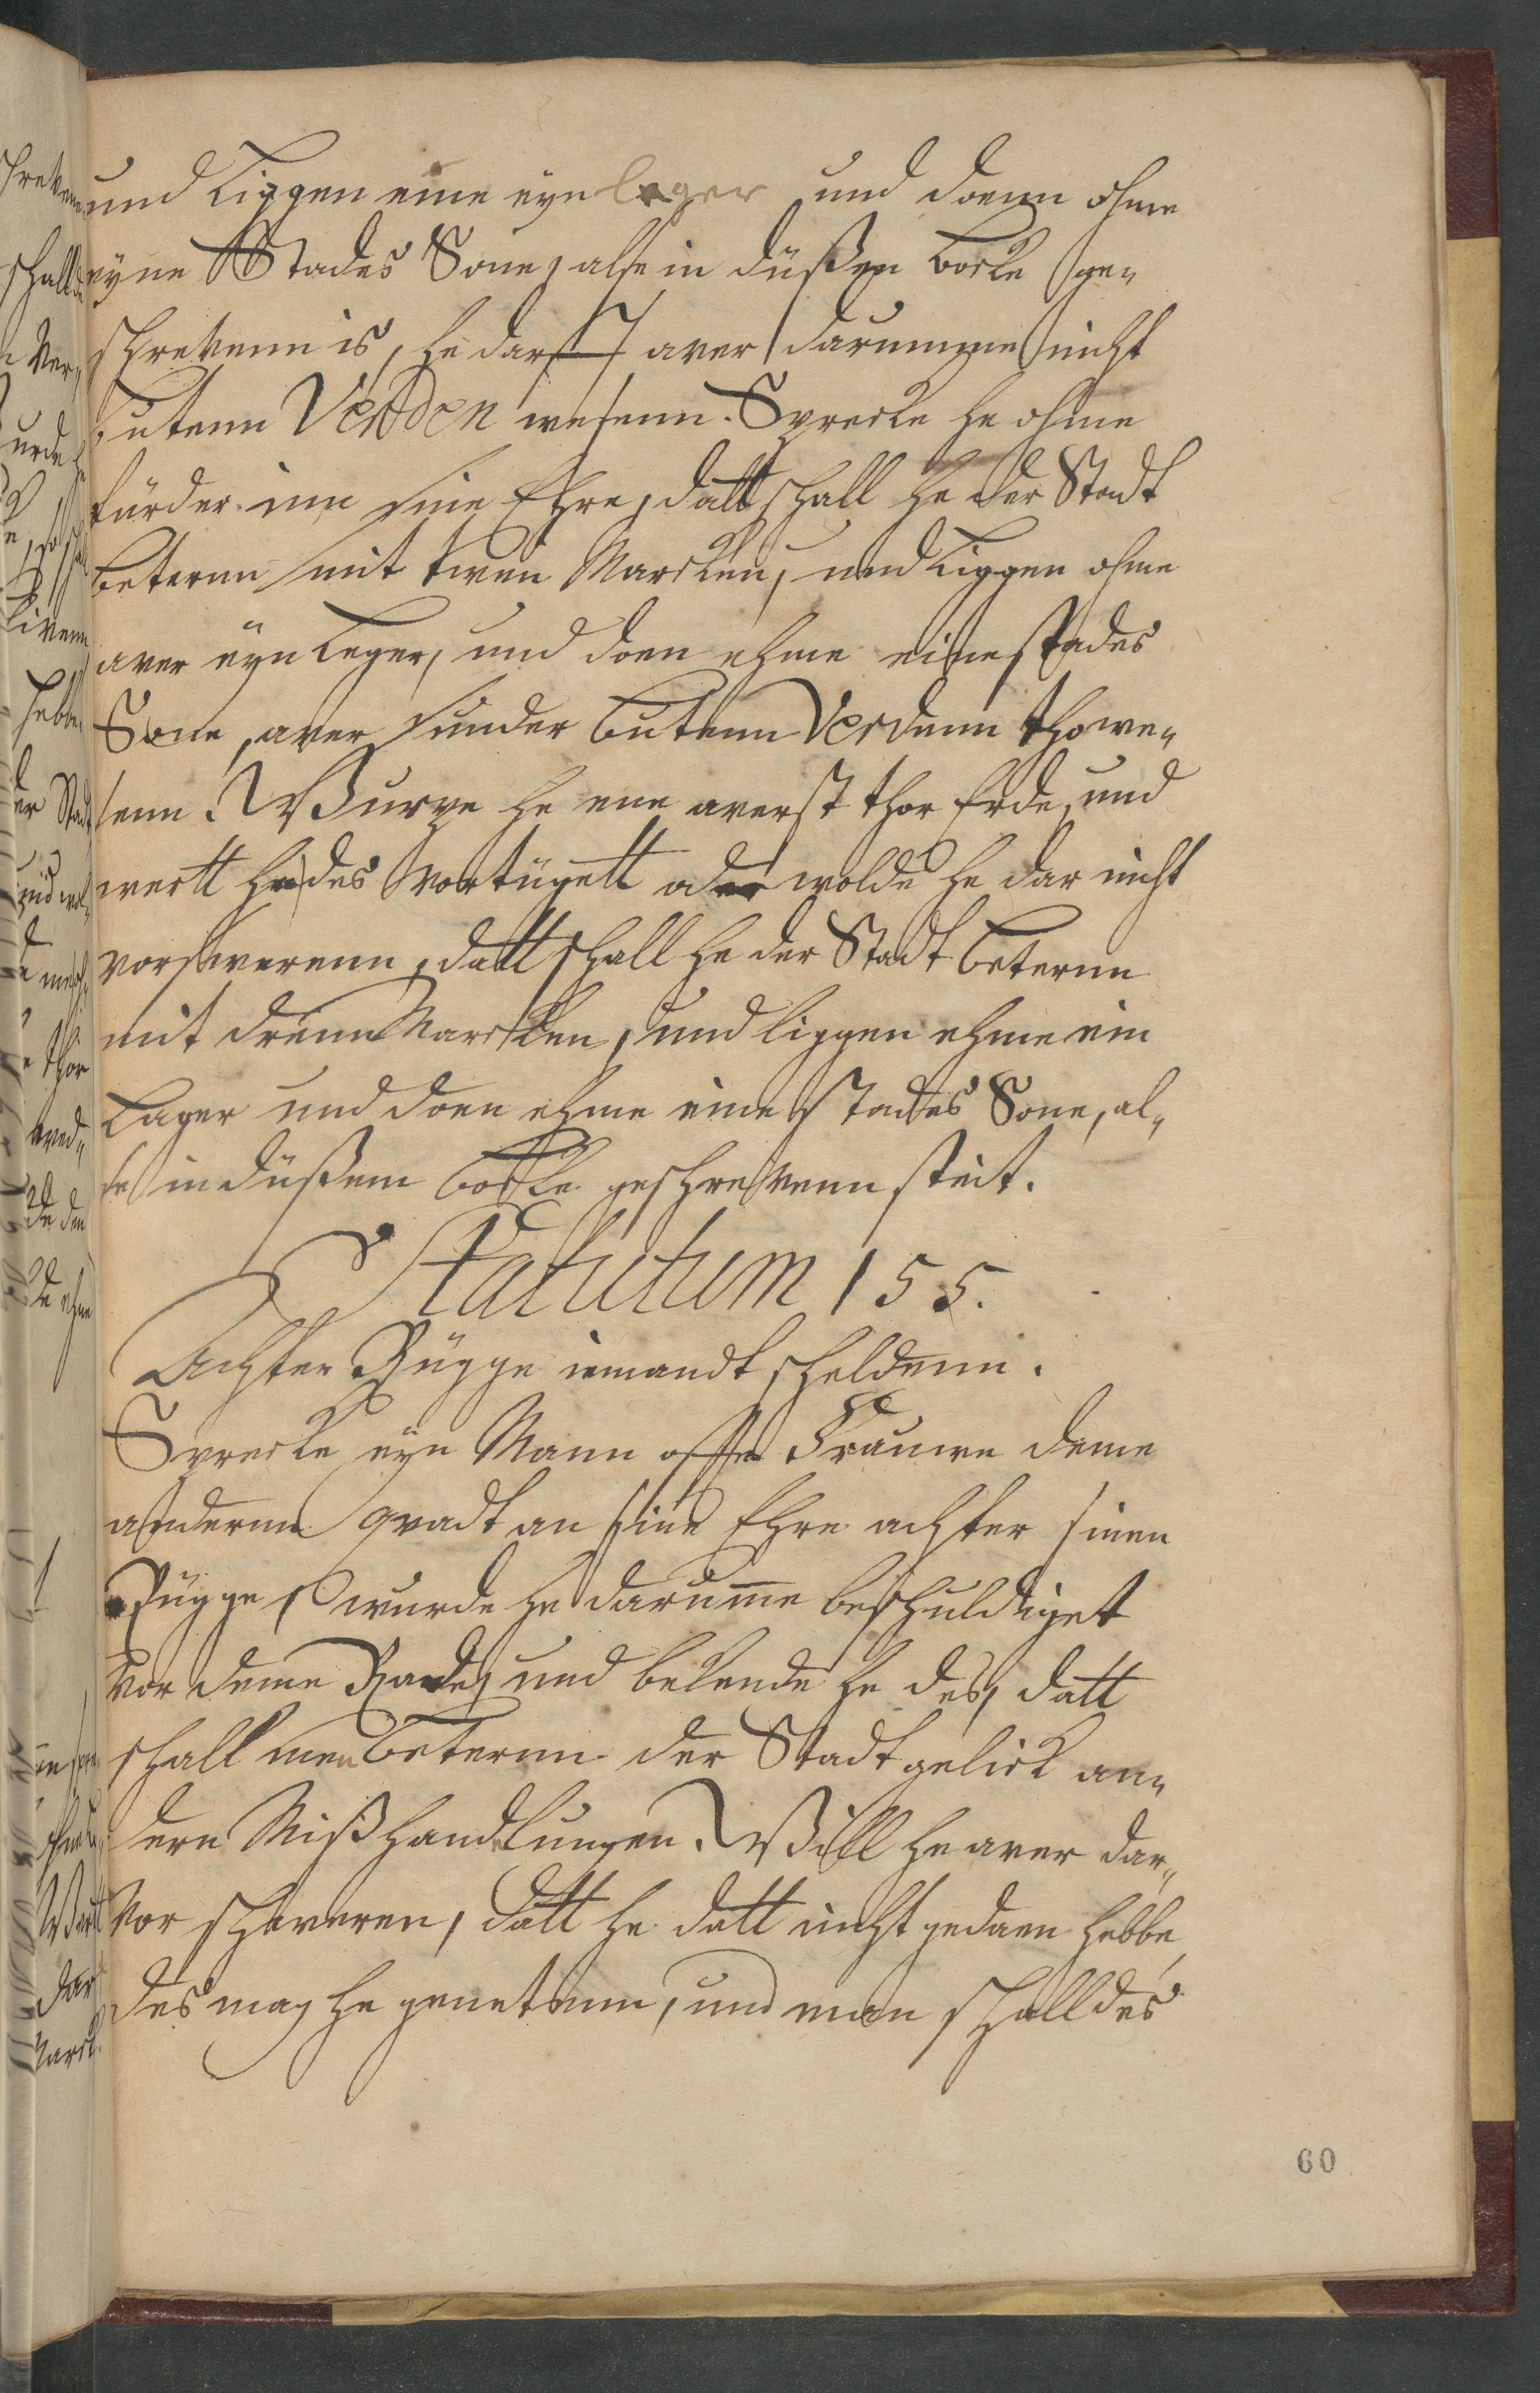 und liggen eme eyn leger und doenn ohme
eyne Stades Sone, alse in düßen boeke ge„
schrevenn is, he darff aver darumme nicht
butenn Verden wesenn. Sprecke he ohme
fürder inn sine Ehre, datt schall he der Stadt
beternn mit twen Marcken, und liggen ohme
aver eyn leger, und doen ehme eine stades
Sone, aver sunder butenn Verdenn tho we„
senn. Wurpe he ene averst thor Erde, und
wertt he des vortügett oder wolde he dar nicht
vorsweerenn, datt schall he der Stadt beternn
mit drenn Marcken, und liggen ehme ein
Lager und doen ehme eine stades Sone, al„
se in düßem boeke geschrevenn steit.
Statutum 155.
Achter Rügge iemandt scheldenn.
Sprecke eyn Mann offte Frauwe deme
anderenn quadt an sine Ehre achter sinen
Rügge, wurde he darumme beschuldiget
vor deme Rade, und bekende he des, datt
schall men beternn der Stadt gelick an„
dern Mißhandlungen. Will he aver dar„
vor schweren, datt he datt nicht gedaen hebbe,
des mag he genetenn, und man schall des
60